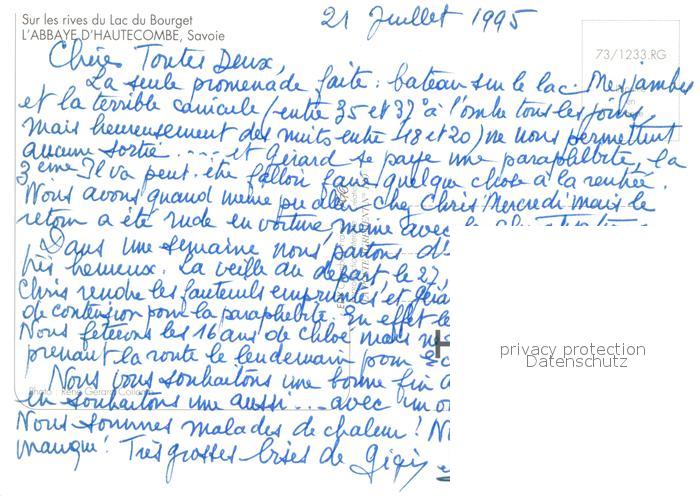 Sur les rives du Lac du Bourget
L'ABBAYE D'HAUTECOMBE, Savoie
21 Juillet 1995
73/1233.RG
Chères Toutes Deux,
La seule promenade faite : bateau sur le lac. Mes jambes
et la terrible canicule (entre 35 et 37° à l'ombre tous les jours,
mais heureusement des nuits entre 18 et 20) ne nous permettent
aucune sortie .... et Gérard se paye une paraphlébite, la
3ème. Il va peut-être falloir faire quelque chose à la rentrée.
Nous avons quand même pu aller chez Chris Mercredi mais le
retour a été rude en voiture, même avec la climatisation
Dans une semaine nous partons
très heureux. La veille du départ le 27,
Chris rendre les fauteuils empruntés et
de contension pour la paraphlébite. En effet
Nous fêterons les 16 ans de Chloé mais
prenant la route le lendemain pour
Nous vous souhaitons une bonne fin
en souhaitons une aussi ... avec un
Nous sommes malades de chaleur !
manque ! Très grosses bises de Gigi
Photo : René Gérard Collomb
privacy protection
Datenschutz